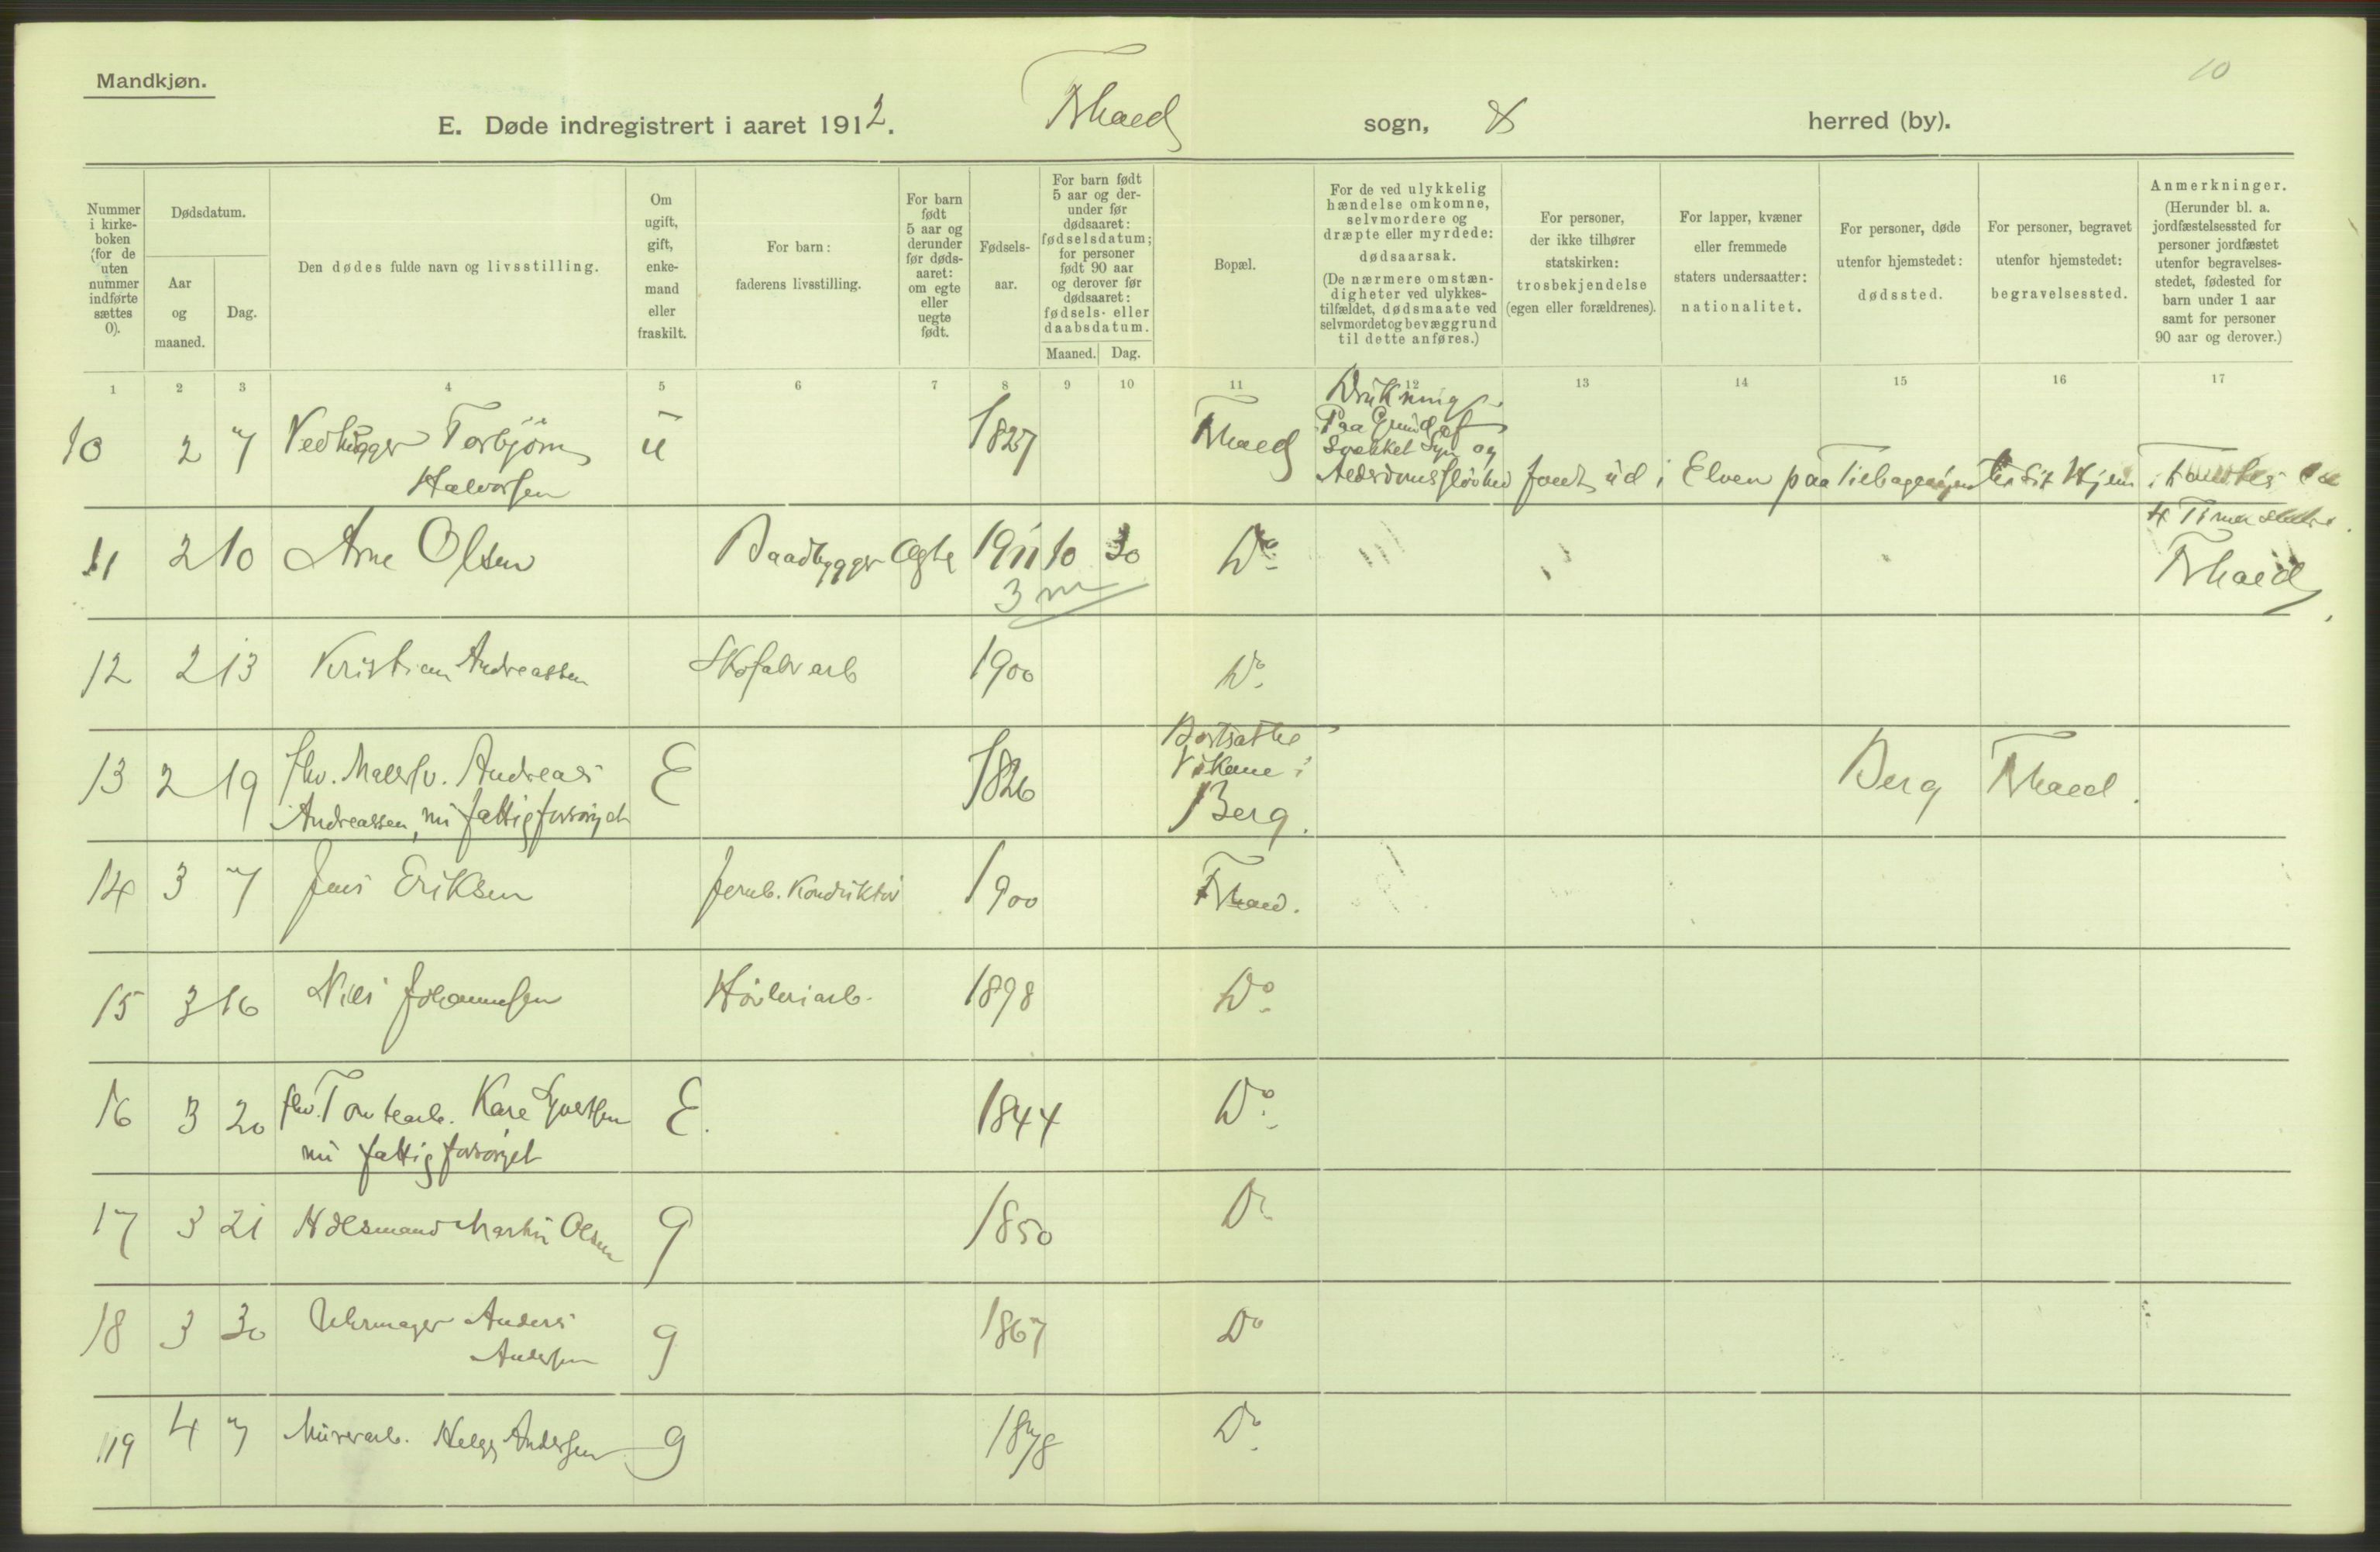 10
Mandkjøn.
E. Døde indregistrert i aaret 1912. Fhald sogn, & herred (by).
Nummer i kirke-boken (for de uten nummer indførte sættes 0).
Dødsdatum.
Aar og maaned.
Dag.
Den dødes fulde navn og livsstilling.
Om ugift, gift, enke-mand eller fraskilt.
For barn: faderens livsstilling.
For barn født 5 aar og derunder før døds-aaret: om egte eller uegte født.
Fødsels-aar.
For barn født 5 aar og der-under før dødsaaret: fødselsdatum; for personer født 90 aar og derover før dødsaaret: fødsels- eller daabsdatum.
Maaned. Dag.
Bopæl.
For de ved ulykkelig hændelse omkomne, selvmordere og dræpte eller myrdede: dødsaarsak.
(De nærmere omstæn-digheter ved ulykkes-tilfældet, dødsmaate ved selvmordet og bevæggrund til dette anføres.)
For personer, der ikke tilhører statskirken: trosbekjendelse (egen eller forældrenes).
For lapper, kvæner eller fremmede staters undersaatter: nationalitet.
For personer, døde utenfor hjemstedet: dødssted.
For personer, begravet utenfor hjemstedet: begravelsessted.
Anmerkninger.
(Herunder bl. a. jordfæstelsessted for personer jordfæstet utenfor begravelses-stedet, fødested for barn under 1 aar samt for personer 90 aar og derover.)
1 2 3 4 5 6 7 8 9 10 11 12 13 14 15 16 17
10 2 7 Vedhugger Torbjörn Halvorsen u 1827 Fhald Drukning. Paa Grund af svækket Syn og Alderdomssløvhed faldt ud i Elven paa til sit Hjem
4 Timer
11 2 10 Arne Olsen Baadbygger Ægte 1911 10 30 Do Fhald
3 m
12 2 13 Kristian Andreassen Skofabr arb 1900 Do
13 2 19 fhv. Malersv. Andreas Andreassen, nu fattigforsörget E 1826 Bortsatte i Berg. Berg Fhald.
14 3 7 Jens Eriksen Jernb. Konduktör 1900 Fhald.
15 3 16 Nils Johannesen Hövleriarb. 1898 Do
16 3 20 fhv. Tomtearb. Kare Syvertsen nu fattigforsörget E. 1844 Do
17 3 21 Martin Olsen g 1850 Do
18 3 30 Uhrmager Anders Andersen g 1867 Do
19 4 7 Murerarb. Helge Andersen g 1878 Do